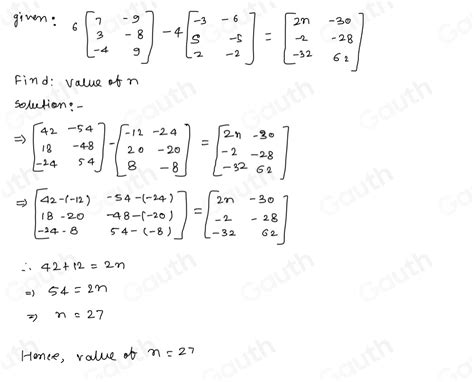 given: 6 [7 -9; 3 -8; -4 9] - 4 [-3 -6; 5 -5; 2 -2] = [2n -30; -2 -28; -32 62]
Find: value of n
Solution:-
⇒ [42 -54; 18 -48; -24 54] - [-12 -24; 20 -20; 8 -8] = [2n -30; -2 -28; -32 62]
⇒ [42-(-12) -54-(-24); 18-20 -48-(-20); -24-8 54-(-8)] = [2n -30; -2 -28; -32 62]
∴ 42+12 = 2n
⇒ 54 = 2n
⇒ n = 27
Hence, value of n = 27
Gauth